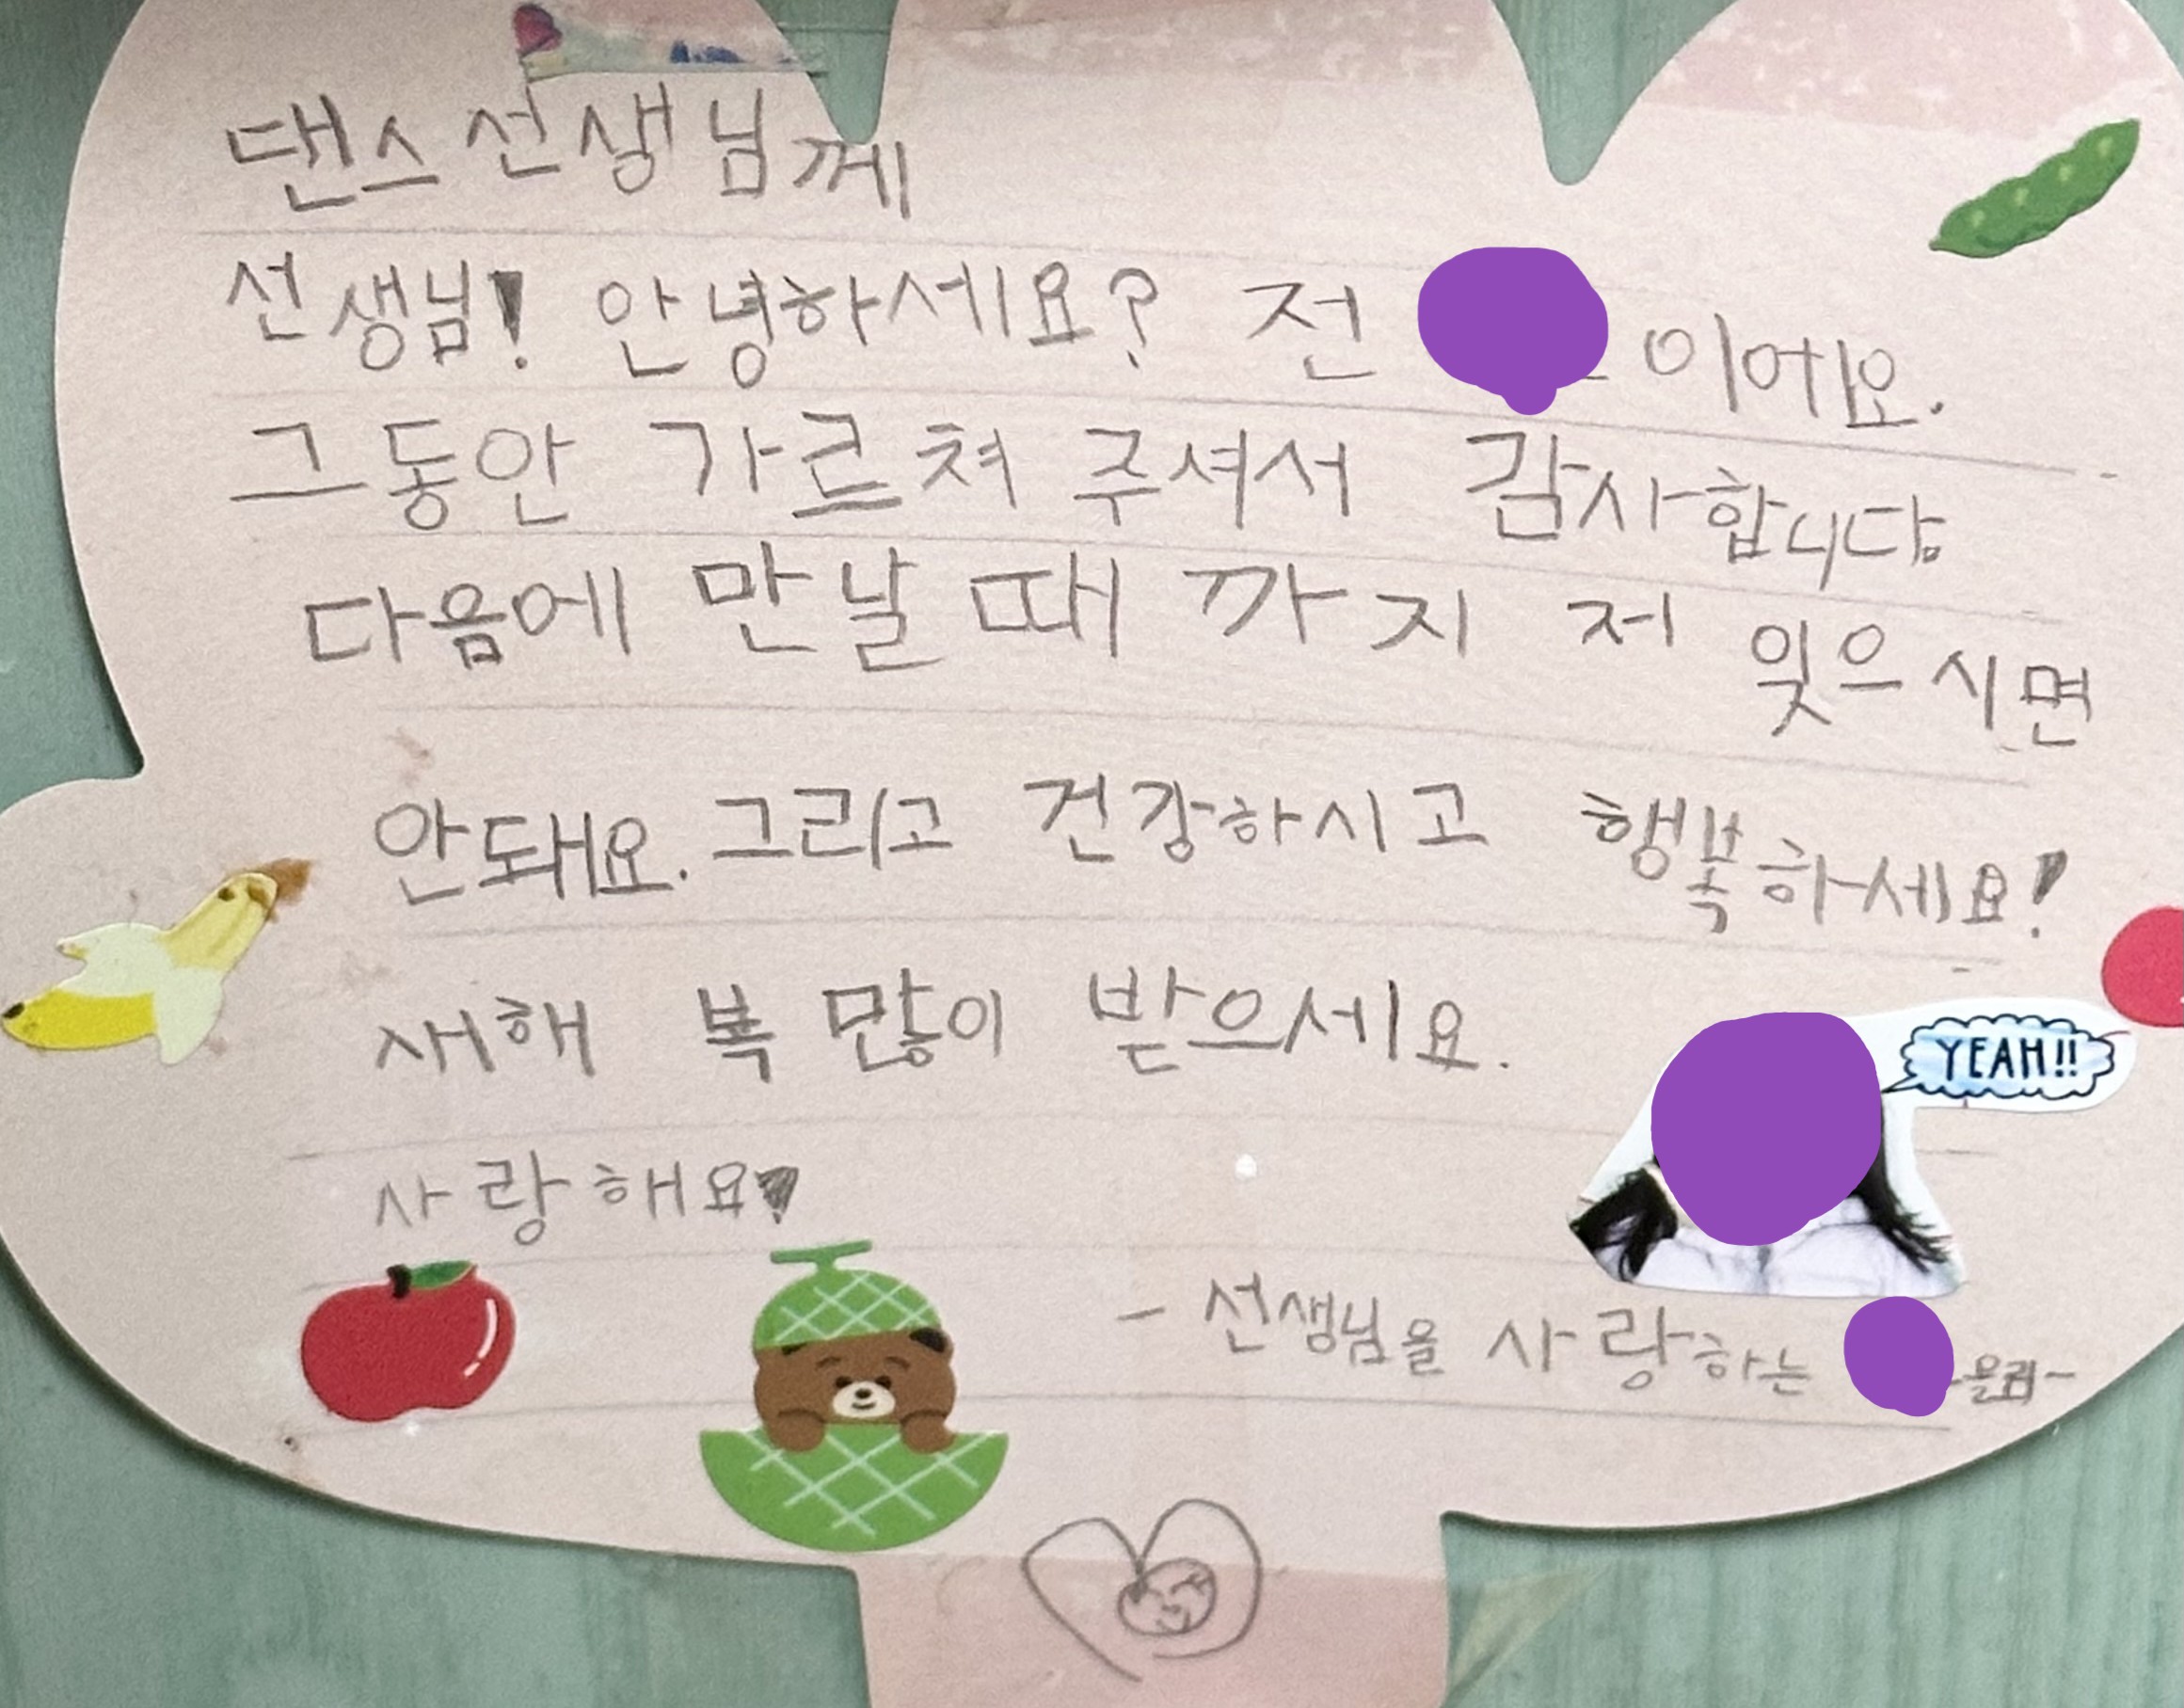 댄스선생님께
선생님! 안녕하세요? 전 이에요.
그동안 가르쳐 주셔서 감사합니다.
다음에 만날 때 까지 저 잊으시면
안돼요. 그리고 건강하시고 행복하세요!
새해 복 많이 받으세요.
YEAH!!
사랑해요♥
- 선생님을 사랑하는 올림-